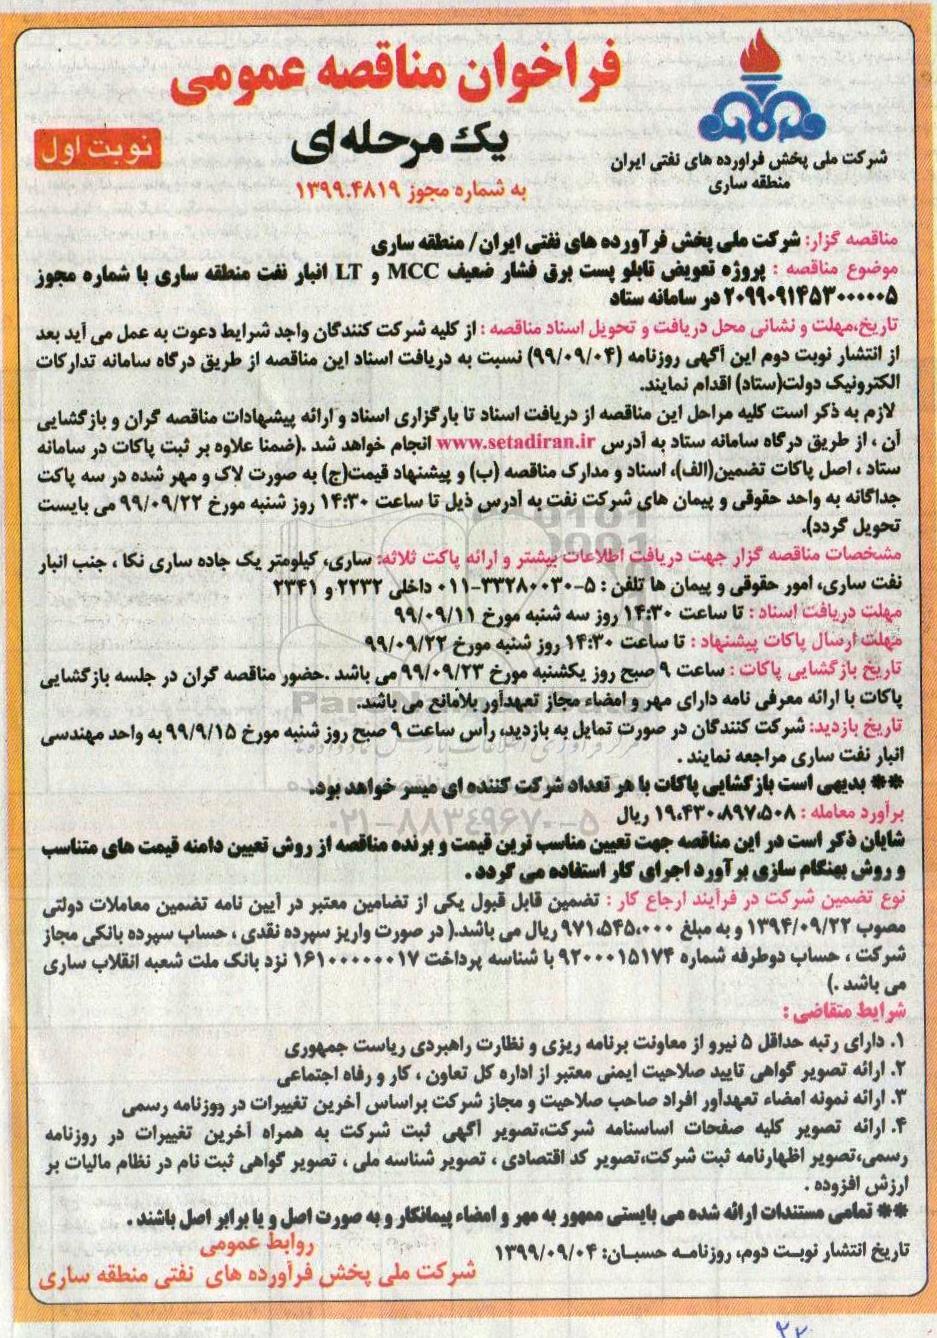 فراخوان مناقصه عمومی
یک مرحله‌ای
به شماره مجوز ۱۳۹۹.۴۸۱۹
نوبت اول
شرکت ملی پخش فراورده های نفتی ایران
منطقه ساری
مناقصه گزار: شرکت ملی پخش فرآورده های نفتی ایران/ منطقه ساری
موضوع مناقصه : پروژه تعویض تابلو پست برق فشار ضعیف MCC و LT انبار نفت منطقه ساری با شماره مجوز
۲۰۹۹۰۹۱۴۵۳۰۰۰۰۰۵ در سامانه ستاد
تاریخ،مهلت و نشانی محل دریافت و تحویل اسناد مناقصه : از کلیه شرکت کنندگان واجد شرایط دعوت به عمل می آید بعد
از انتشار نوبت دوم این آگهی روزنامه (۹۹/۰۹/۰۴) نسبت به دریافت اسناد این مناقصه از طریق درگاه سامانه تدارکات
الکترونیک دولت(ستاد) اقدام نمایند.
لازم به ذکر است کلیه مراحل این مناقصه از دریافت اسناد تا بارگزاری اسناد و ارائه پیشهادات مناقصه گران و بازگشایی
آن ، از طریق درگاه سامانه ستاد به آدرس www.setadiran.ir انجام خواهد شد .(ضمنا علاوه بر ثبت پاکات در سامانه
ستاد ، اصل پاکات تضمین(الف)، اسناد و مدارک مناقصه (ب) و پیشنهاد قیمت(ج) به صورت لاک و مهر شده در سه پاکت
جداگانه به واحد حقوقی و پیمان های شرکت نفت به آدرس ذیل تا ساعت ۱۴:۳۰ روز شنبه مورخ ۹۹/۰۹/۲۲ می بایست
تحویل گردد).
مشخصات مناقصه گزار جهت دریافت اطلاعات بیشتر و ارائه پاکت ثلاثه: ساری، کیلومتر یک جاده ساری نکا ، جنب انبار
نفت ساری، امور حقوقی و پیمان ها تلفن : ۵-۳۳۲۸۰۰۳۰-۰۱۱ داخلی ۲۲۳۲ و ۲۳۴۱
مهلت دریافت اسناد : تا ساعت ۱۴:۳۰ روز سه شنبه مورخ ۹۹/۰۹/۱۱
مهلت ارسال پاکات پیشنهاد : تا ساعت ۱۴:۳۰ روز شنبه مورخ ۹۹/۰۹/۲۲
تاریخ بازگشایی پاکات : ساعت ۹ صبح روز یکشنبه مورخ ۹۹/۰۹/۲۳ می باشد .حضور مناقصه گران در جلسه بازگشایی
پاکات با ارائه معرفی نامه دارای مهر و امضاء مجاز تعهدآور بلامانع می باشد.
تاریخ بازدید: شرکت کنندگان در صورت تمایل به بازدید، رأس ساعت ۹ صبح روز شنبه مورخ ۹۹/۹/۱۵ به واحد مهندسی
انبار نفت ساری مراجعه نمایند .
** بدیهی است بازگشایی پاکات با هر تعداد شرکت کننده ای میسر خواهد بود.
برآورد معامله : ۱۹،۴۳۰،۸۹۷،۵۰۸ ریال
شایان ذکر است در این مناقصه جهت تعیین مناسب ترین قیمت و برنده مناقصه از روش تعیین دامنه قیمت های متناسب
و روش بهنگام سازی برآورد اجرای کار استفاده می گردد .
نوع تضمین شرکت در فرآیند ارجاع کار : تضمین قابل قبول یکی از تضامین معتبر در آیین نامه تضمین معاملات دولتی
مصوب ۱۳۹۴/۰۹/۲۲ و به مبلغ ۹۷۱،۵۴۵،۰۰۰ ریال می باشد.( در صورت واریز سپرده نقدی ، حساب سپرده بانکی مجاز
شرکت ، حساب دوطرفه شماره ۹۲۰۰۰۱۵۱۷۴ با شناسه پرداخت ۱۶۱۰۰۰۰۰۰۰۱۷ نزد بانک ملت شعبه انقلاب ساری
می باشد .)
شرایط متقاضی :
۱. دارای رتبه حداقل ۵ نیرو از معاونت برنامه ریزی و نظارت راهبردی ریاست جمهوری
۲. ارائه تصویر گواهی تایید صلاحیت ایمنی معتبر از اداره کل تعاون ، کار و رفاه اجتماعی
۳. ارائه نمونه امضاء تعهدآور افراد صاحب صلاحیت و مجاز شرکت براساس آخرین تغییرات در ووزنامه رسمی
۴. ارائه تصویر کلیه صفحات اساسنامه شرکت،تصویر آگهی ثبت شرکت به همراه آخرین تغییرات در روزنامه
رسمی،تصویر اظهارنامه ثبت شرکت،تصویر کد اقتصادی ، تصویر شناسه ملی ، تصویر گواهی ثبت نام در نظام مالیات بر
ارزش افزوده .
** تمامی مستندات ارائه شده می بایستی ممهور به مهر و امضاء پیمانکار و به صورت اصل و یا برابر اصل باشند .
تاریخ انتشار نوبت دوم، روزنامه حسبان: ۱۳۹۹/۰۹/۰۴
روابط عمومی
شرکت ملی پخش فرآورده های نفتی منطقه ساری
۰۲۱-۸۸۳۴۹۶۷۰-۵